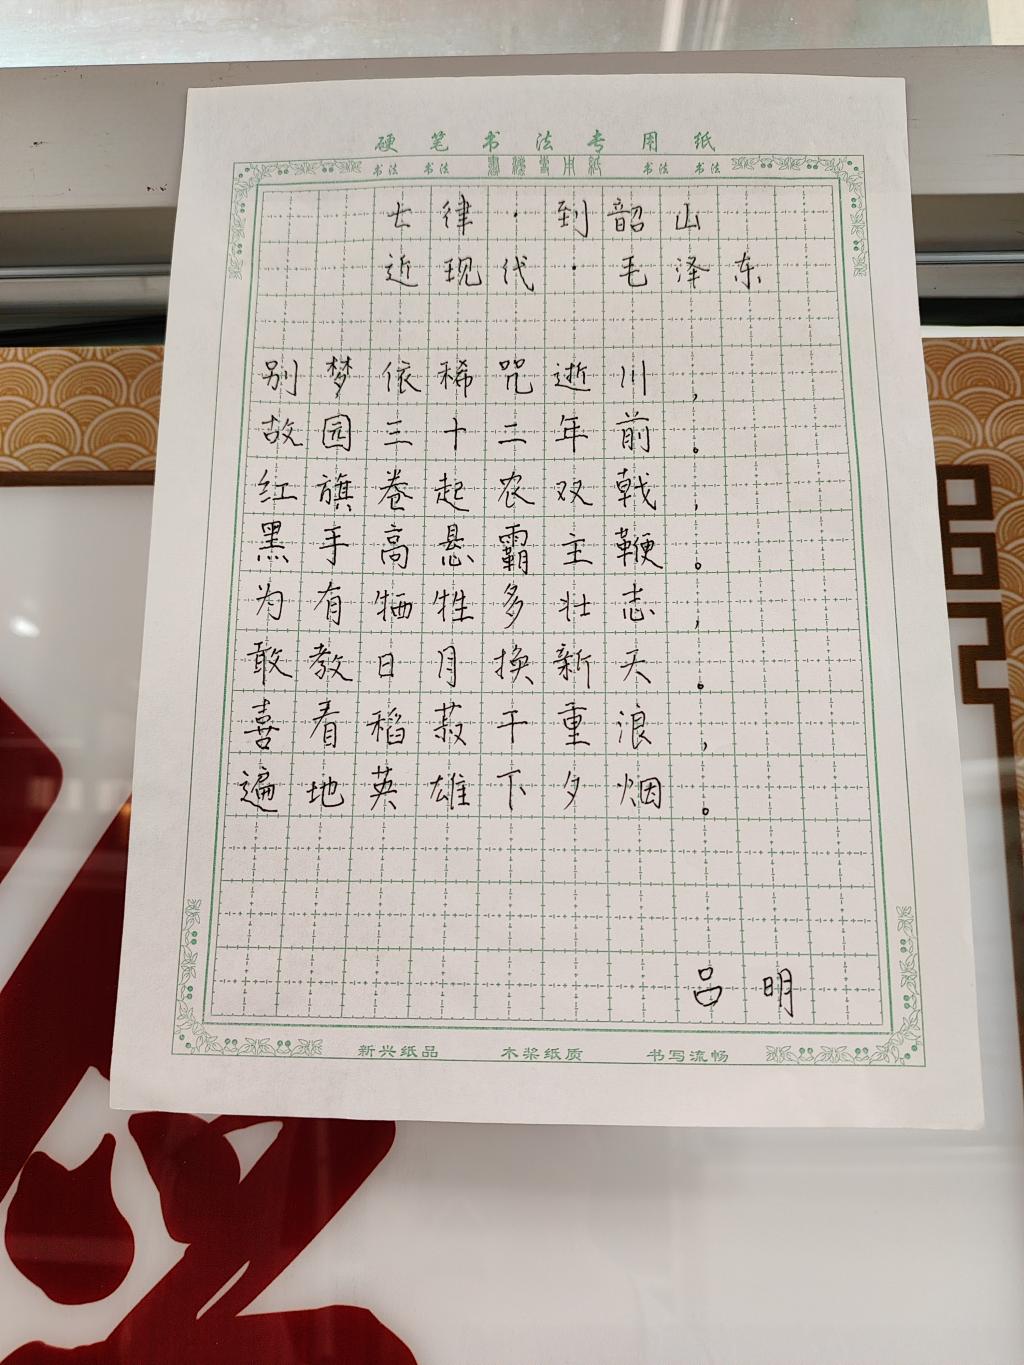 硬笔书法专用纸
书法 书法 書法專用紙 书法 书法
七律·到韶山
近现代·毛泽东
别梦依稀咒逝川，
故园三十二年前。
红旗卷起农双戟，
黑手高悬霸主鞭。
为有牺牲多壮志，
敢教日月换新天。
喜看稻菽千重浪，
遍地英雄下夕烟。
吕明
新兴纸品 木浆纸质 书写流畅